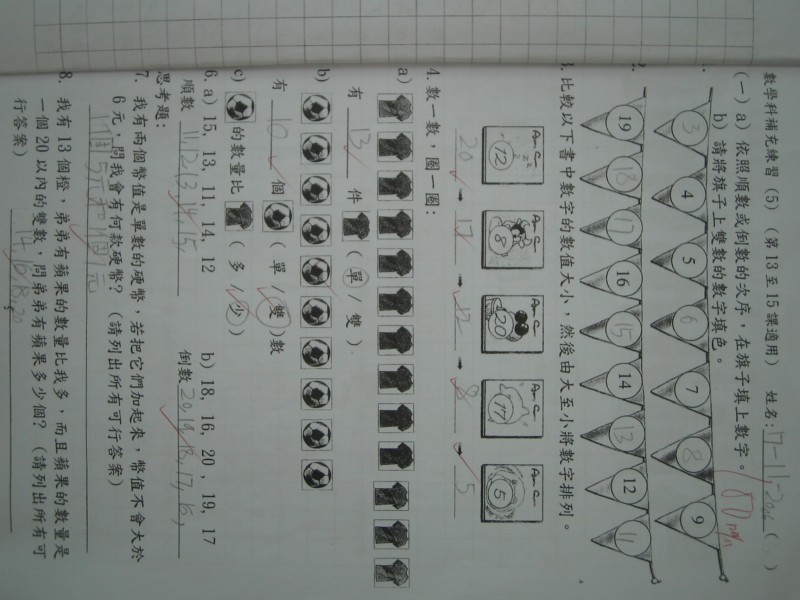 數學科補充練習（5）（第13至15課適用） 姓名:
（一）a）依照順數或倒數的次序，在旗子填上數字。
b）請將旗子上雙數的數字填色。
3 4 5 6 7 8 9
19 18 17 16 15 14 13 12 11
比較以下書中數字的數值大小，然後由大至小將數字排列。
12 8 20 17 5
20 17 12 8 5
4. 數一數，圈一圈：
a)
有 13 件（單/雙）
b)
有 10 個（單/雙）數
c) 的數量比（多/少）
6. a) 15, 13, 11, 14, 12 b) 18, 16, 20, 19, 17
順數 11,12,13,14,15 倒數 20,19,18,17,16,
思考題：
7. 我有兩個幣值是單數的硬幣，若把它們加起來，幣值不會大於
6元，問我會有何款硬幣？（請列出所有可行答案）
8. 我有13個橙，弟弟有蘋果的數量比我多，而且蘋果的數量是
一個20以內的雙數，問弟弟有蘋果多少個？（請列出所有可
行答案）
14,16,18,20